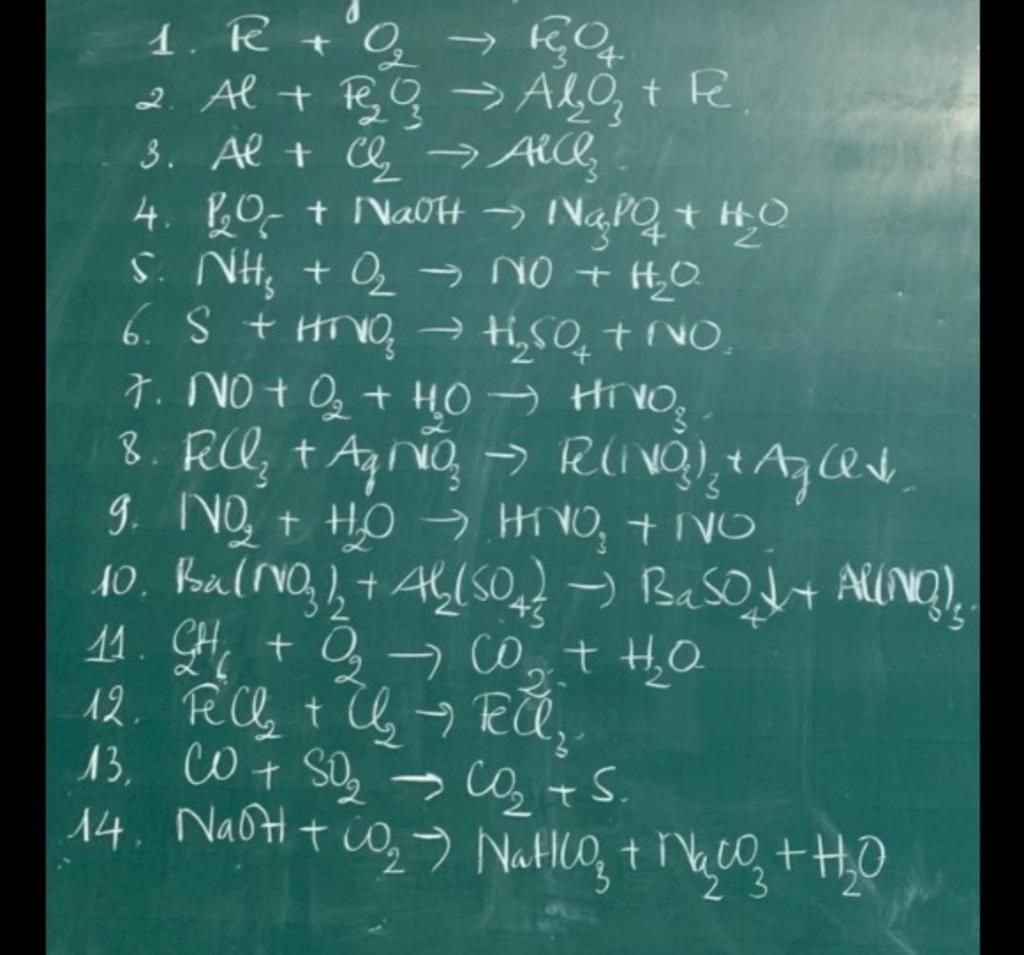 1. Fe + O₂ → Fe₃O₄
2. Al + Fe₂O₃ → Al₂O₃ + Fe.
3. Al + Cl₂ → AlCl₃.
4. P₂O₅ + NaOH → Na₃PO₄ + H₂O
5. NH₃ + O₂ → NO + H₂O
6. S + HNO₃ → H₂SO₄ + NO.
7. NO + O₂ + H₂O → HNO₃.
8. FeCl₃ + AgNO₃ → Fe(NO₃)₃ + AgCl↓.
9. NO₂ + H₂O → HNO₃ + NO
10. Ba(NO₃)₂ + Al₂(SO₄)₃ → BaSO₄↓ + Al(NO₃)₃.
11. C₂H₆ + O₂ → CO₂ + H₂O
12. FeCl₂ + Cl₂ → FeCl₃.
13. CO + SO₂ → CO₂ + S.
14. NaOH + CO₂ → NaHCO₃ + Na₂CO₃ + H₂O